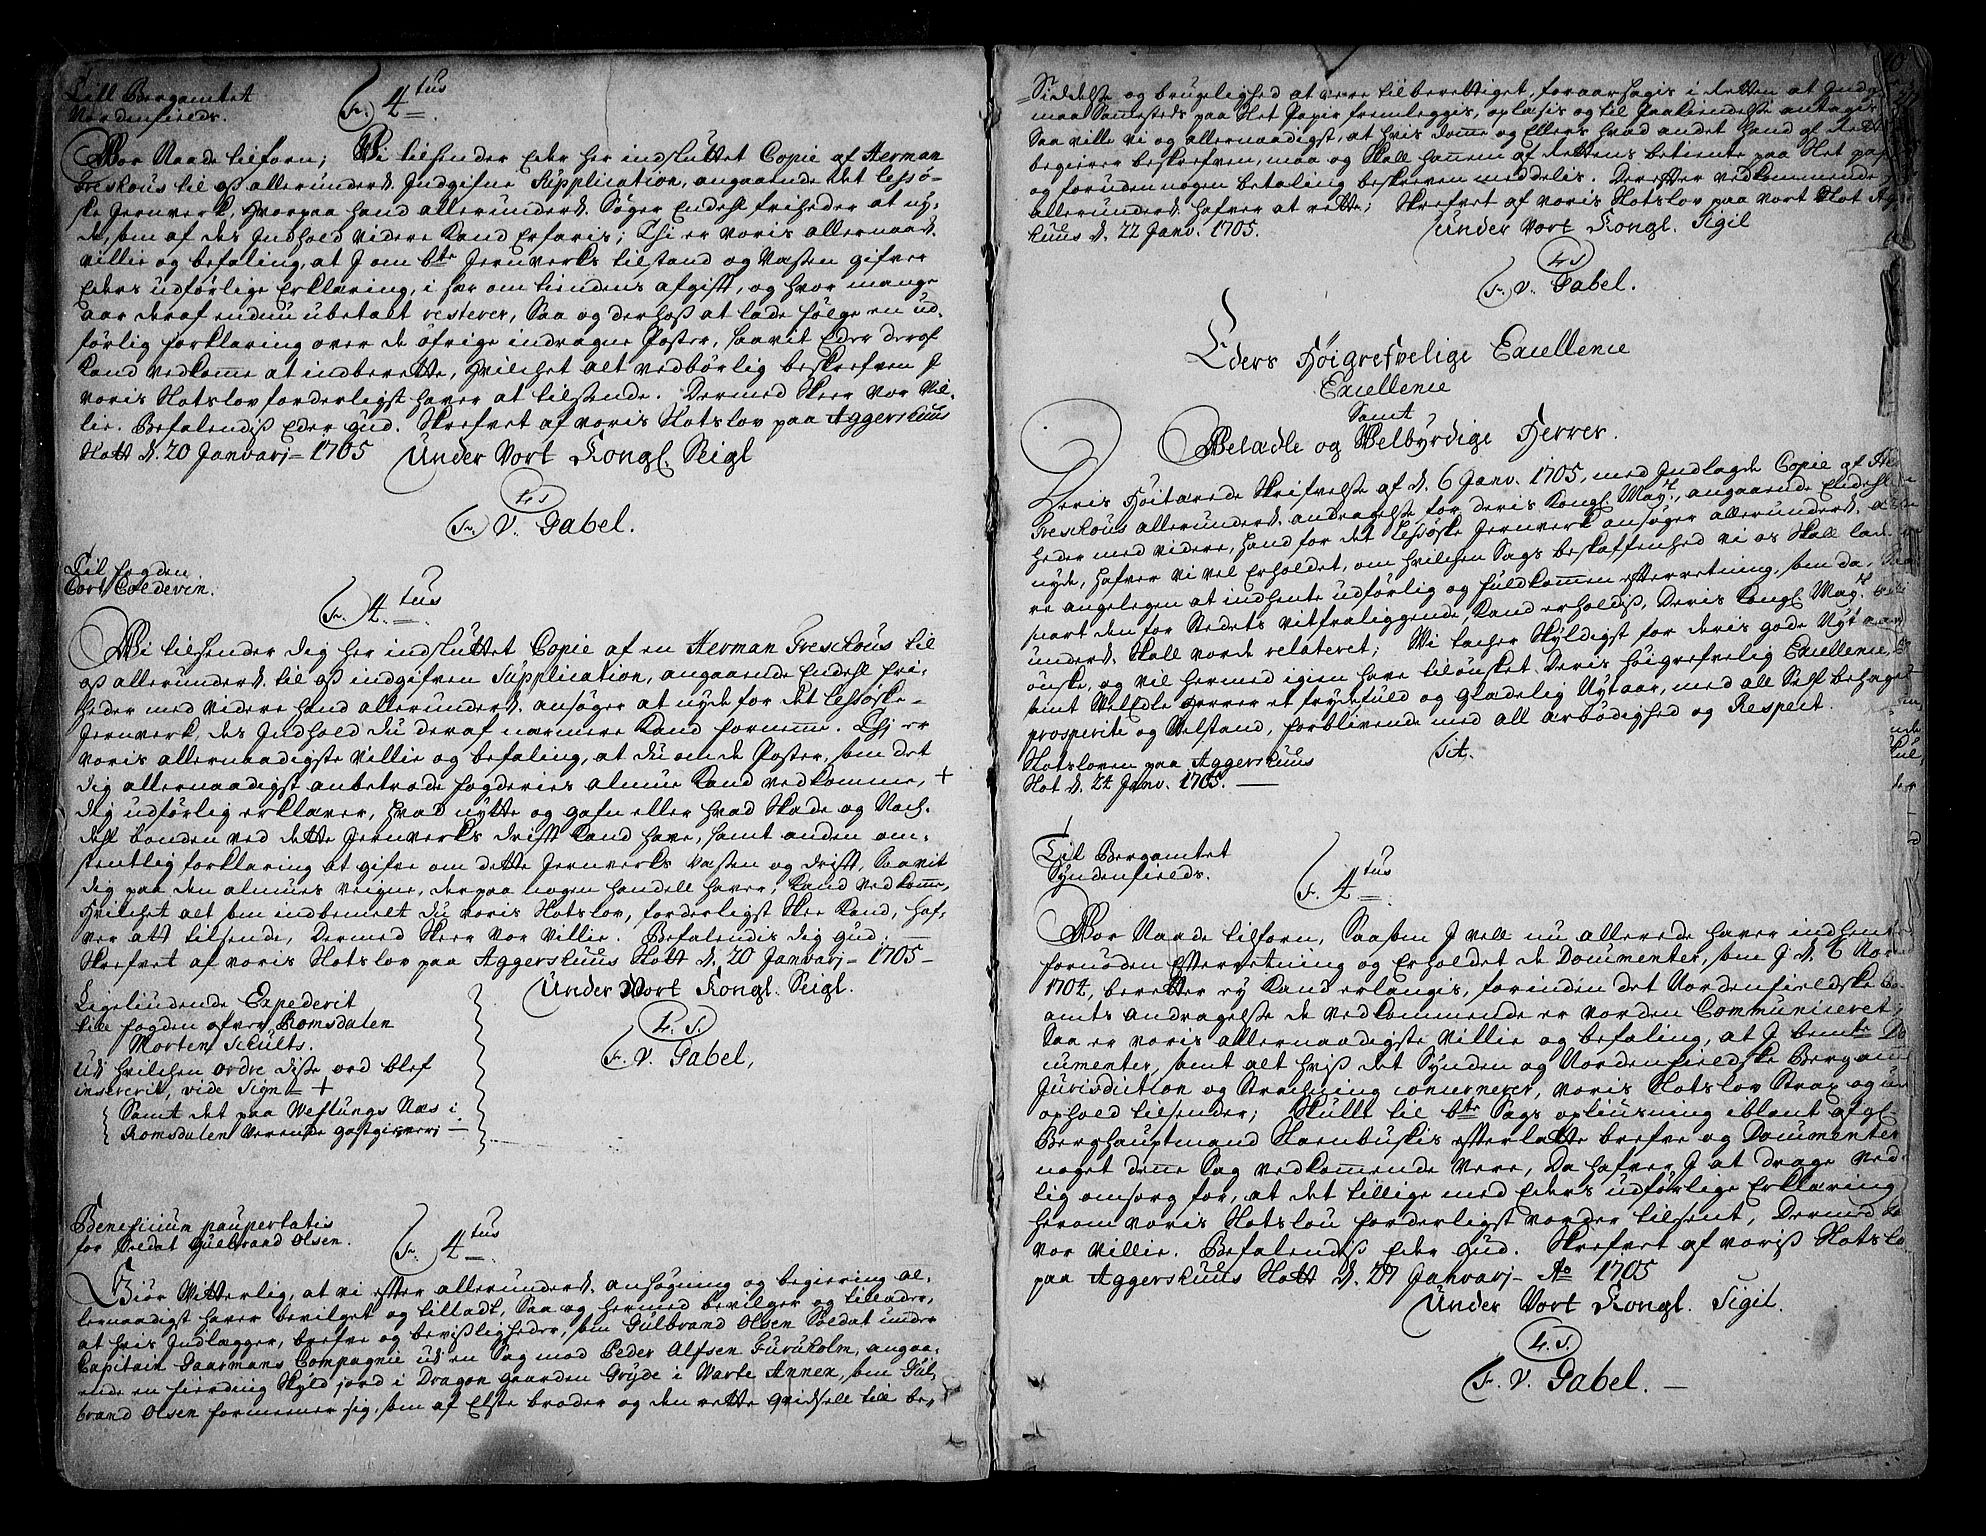 Till Bergamtet
Nordenfields.
Fr. 4tus
Vor Naade tilforn; Vi tilsender Eder her indsluttet Copie af Herman
Treschous til oss allerunderd. Indgifne Supplication, angaaende det Lessø-
ske Jernverk, Hvorpaa hand allerunderd. Søger Endehl friheder at ny-
de, som af des Indhold videre Kand Erfaris; Thi er voris allernaad.
villie og befaling, at I om bte Jernverks tilstand og væsen gifver
Eders udførlige Erklæring, i sær om tiendens afgift, og hvor mange
aar deraf endnu ubetalt resterer, Saa og derhoss at lade følge en ud-
førlig forklaring over de øfrige indragne Poster, saavit Eder deraf
Kand vedkomme at indberette, Hvilchet alt vedbørlig beskrefven I
voris Slotslov forderligst haver at tilsende. Dermed Skeer vor vil-
lie. Befalendiss Eder Gud. Skrefvet af voris Slotslov paa Aggershuus
Slott d. 20 Januarj 1705 Under Vort Kongl. Seigl
L S
Fr. V. Gabel.
Til fogden
Cort Coldevin.
Fr. 4tus
Vi tilsender dig her indsluttet Copie af en Herman Treschous til
oss allerunderd. til oss indgifven Supplication, angaaende Endehl fri-
heder med videre hand allerunderd. ansøger at nyde for det Lessøske-
Jernverk, des Indhold du deraf nærmere Kand fornemme. Thj er
voris allernaadigste villie og befaling, at du om de Poster, som det
dig allernaadigst anbetrode fogderies almue Kand vedkomme, +
dig udførlig erklærer, hvad nytte og gafn eller hvad Skade og Nach-
dehl bonden ved dette Jernverks drift Kand have, samt anden om-
stentlig forklaring at gifve om dette Jernverks væsen og drift, Saavit
dig paa den almues veigne, der paa nogen handell haver, Kand vedkomme,
Hvilchet alt som indbemelt du voris Slotslov, forderligst Skee Kand, haf-
ver att tilsende, Dermed Skeer vor villie. Befalendis dig Gud.
Skrefvet af voris Slotslov paa Aggershuus Slott d. 20 Januarj 1705
Under Vort Kongl. Seigl.
L. S.
Fr. V. Gabel,
Ligelindende Expederit
till fogden ofver Romsdalen
Morten Schults.
Ud hvilchen ordre disse ord blef
insererit, vide Sign +
Samt det paa Weblungs Næs i
Romsdalen værende gastgiverj
Beneficium paupertatis
for Soldat Gulbrand Olsen.
Fr. 4tus
Giør Vitterlig, at vi efter allerunderd. ansøgning og begiering al-
lernaadigst haver bevilget og tilladt, Saa og hermed bevilger og tillader,
at hvis Indlægger, brefve og bevissligheder, som Gulbrand Olsen Soldat under
Capitain Gaarmans Compagnie ud en Sag mod Peder Alfsen Furuholm, angaa-
ende en fierding Skyld jord i Dragon gaarden Gryde i Warte Annex, som Gul-
brand Olsen formeener sig, som af Elste broder og den rette Qvidsell till be-
Siddelse og brugelighed at være tilberettiget, foraarsagis i Retten at Indgi
maa Samestedz paa Slet Papir fremleggis, oplæsis og til Paakiendelse antagis
Saa ville vi og allernaadigst, at hvis domme og Ellers hvad andet hand af Retten
begierer beskrefven, maa og Skall hannem af Rettens betiente paa Slet papir
og foruden nogen betaling beskreven meddelis. Derefter vedkommende
allerunderd. hafver at rette; Skrefvet af voris Slotslov paa vort Slot Agers
huus d. 22 Janv. 1705. Under Vort Kongl. Sigil
L S
Fr. V. Gabel.
Eders Høigrefvelige Excellence
Excellence
Samt
Velædle og Velbyrdige Herrer.
Deris Høitærede Skrifvelse af d. 6 Janv. 1705, med Indlagde Copie af Her
Treschous allerunderd. andragelse for deris Kongl. Mayt., angaaende Endehl
heder med videre, hand for det Lessøske Jernverk ansøger allerunderd. at
nyde, hafver vi vel Erholdet, om hvilchen Sags beskaffenhed vi os Skall lad
re angelegen at indhente udførlig og fuldkommen efterretning, som da, Saa
snart den for Stedets vitfraliggende, Kand erholdiss, Deris Kongl. Mayt. aller
underd. Skall vorde relateret; Vi tacher Skyldigst for deris gode Nyt aars
ønske, og vil hermed igien have tilønsket Deris høigrefvelig Excellence,
samt VelEdle Herrer et frydefuld og Glædelig Nytaar, med all Selv behagel
prosperite og Velstand, forblivende med all ærbødighed og Respect.
Slotsloven paa Aggershuus Tit.
Slot d. 24 Janv. 1705.
Til Bergamtet
Syndenfields.
Fr. 4tus
Vor Naade tilforn, Saasom I vell nu allerede haver indhent
fornøden Efterretning og Erholdet de Documenter, som I d. 6 Nov
1704, beretter ey Kand erlangis, forinden det Nordenfieldske Be
amts andragelse de vedkommende er vorden Communiceret;
Saa er voris allernaadigste villie og befaling, at I bemte Do
cumenter, samt alt hviss det Synden og Nordenfieldske Bergamt
Jurisdiction og Strechning concernerer, voris Slotslov Strax og u
ophold tilsender; Skulle til bte Sags opliusning iblant afgl.
Berghauptmand Hornbuskis efterlatte brefve og Documenter
noget denne Sag vedkommende være, Da hafver I at drage ved
lig omsorg for, at det tillige med Eders udførlige Erklæring
herom voris Slotslov forderligst vorder tilsent, Dermed
vor villie. Befalendiss Eder Gud. Skrefvet af voriss Slotslo
paa Aggershuus Slott d. 27 Januarj Ao 1705
Under Vort Kongl. Sigil.
L. S.
Fr. V. Gabel.